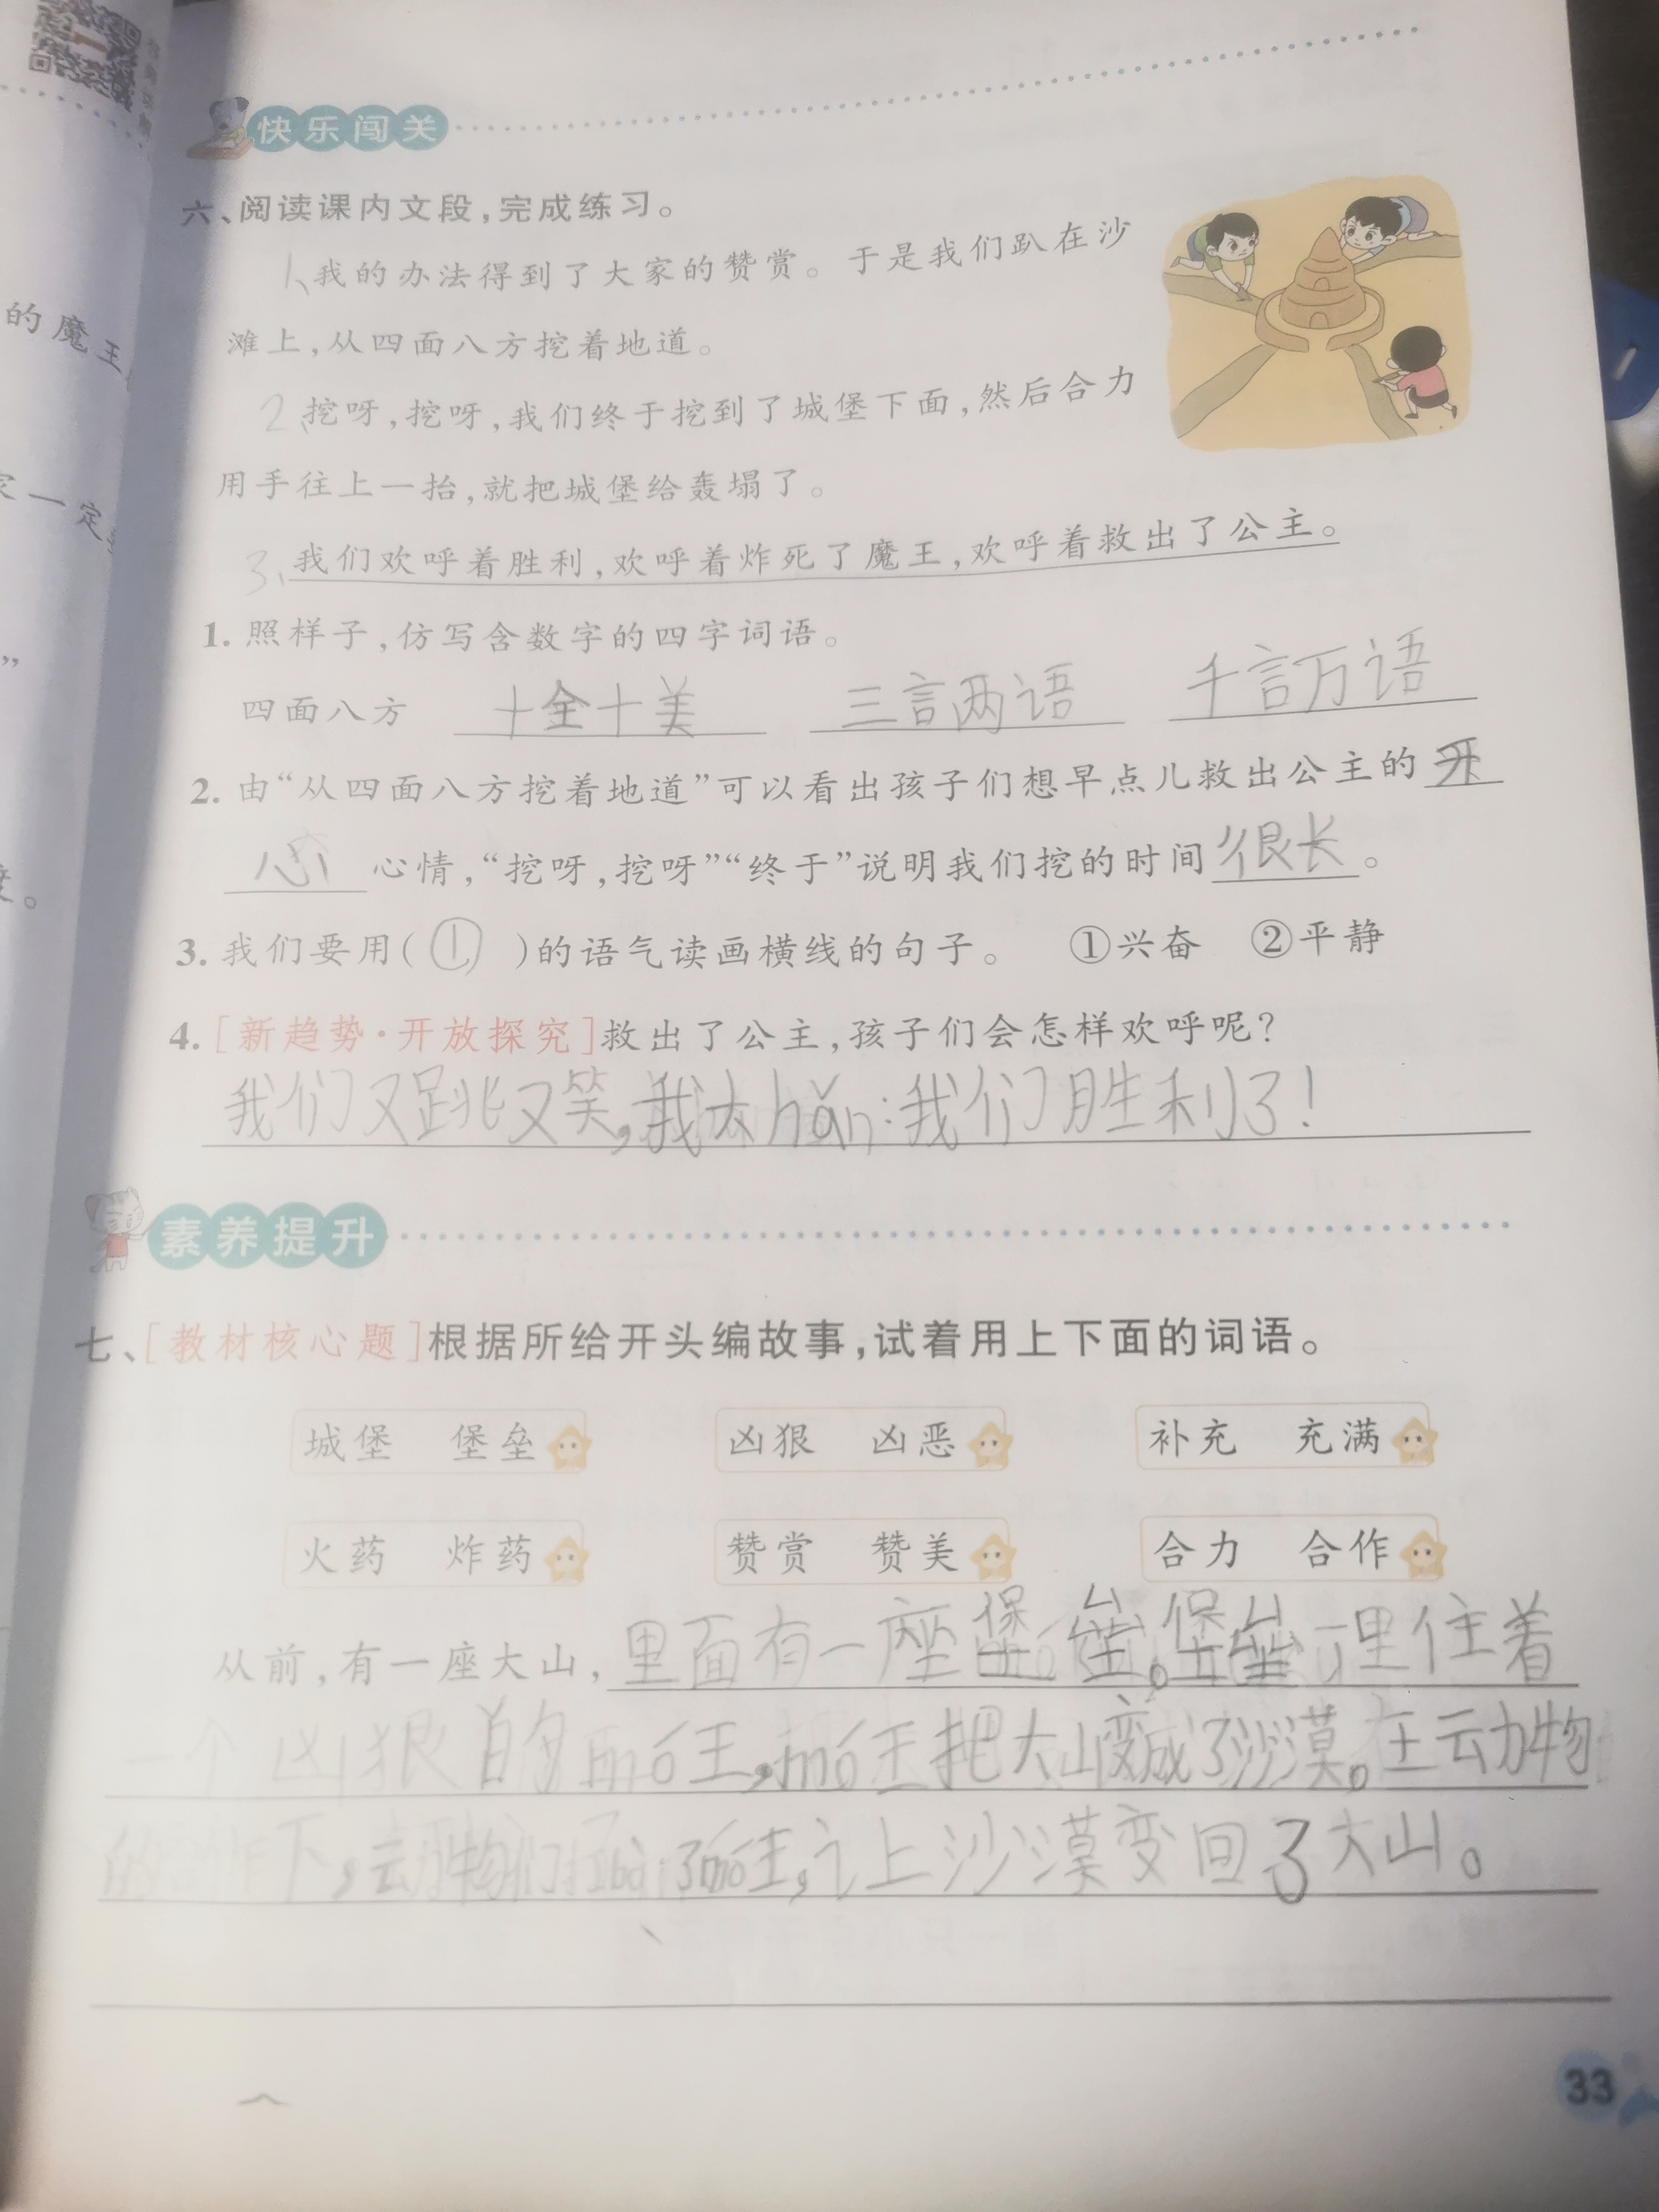 快乐闯关
六、阅读课内文段,完成练习。
1、我的办法得到了大家的赞赏。于是我们趴在沙
滩上,从四面八方挖着地道。
的魔王
2、挖呀,挖呀,我们终于挖到了城堡下面,然后合力
用手往上一抬,就把城堡给轰塌了。
一定
3、我们欢呼着胜利,欢呼着炸死了魔王,欢呼着救出了公主。
1. 照样子,仿写含数字的四字词语。
”
四面八方 十全十美 三言两语 千言万语
2. 由“从四面八方挖着地道”可以看出孩子们想早点儿救出公主的 开
心 心情,“挖呀,挖呀”“终于”说明我们挖的时间 很长 。
3. 我们要用( ① )的语气读画横线的句子。 ①兴奋 ②平静
4. [新趋势·开放探究]救出了公主,孩子们会怎样欢呼呢?
我们又跳又笑,我大hǎn:我们胜利了!
素养提升
七、[教材核心题]根据所给开头编故事,试着用上下面的词语。
城堡 堡垒 凶狠 凶恶 补充 充满
火药 炸药 赞赏 赞美 合力 合作
从前,有一座大山,里面有一座堡垒。堡垒里住着
一个凶狠的mó王,mó王把大山变成了沙漠。在动物
的 下,动物们 了mó王,让上沙漠变回了大山。
33